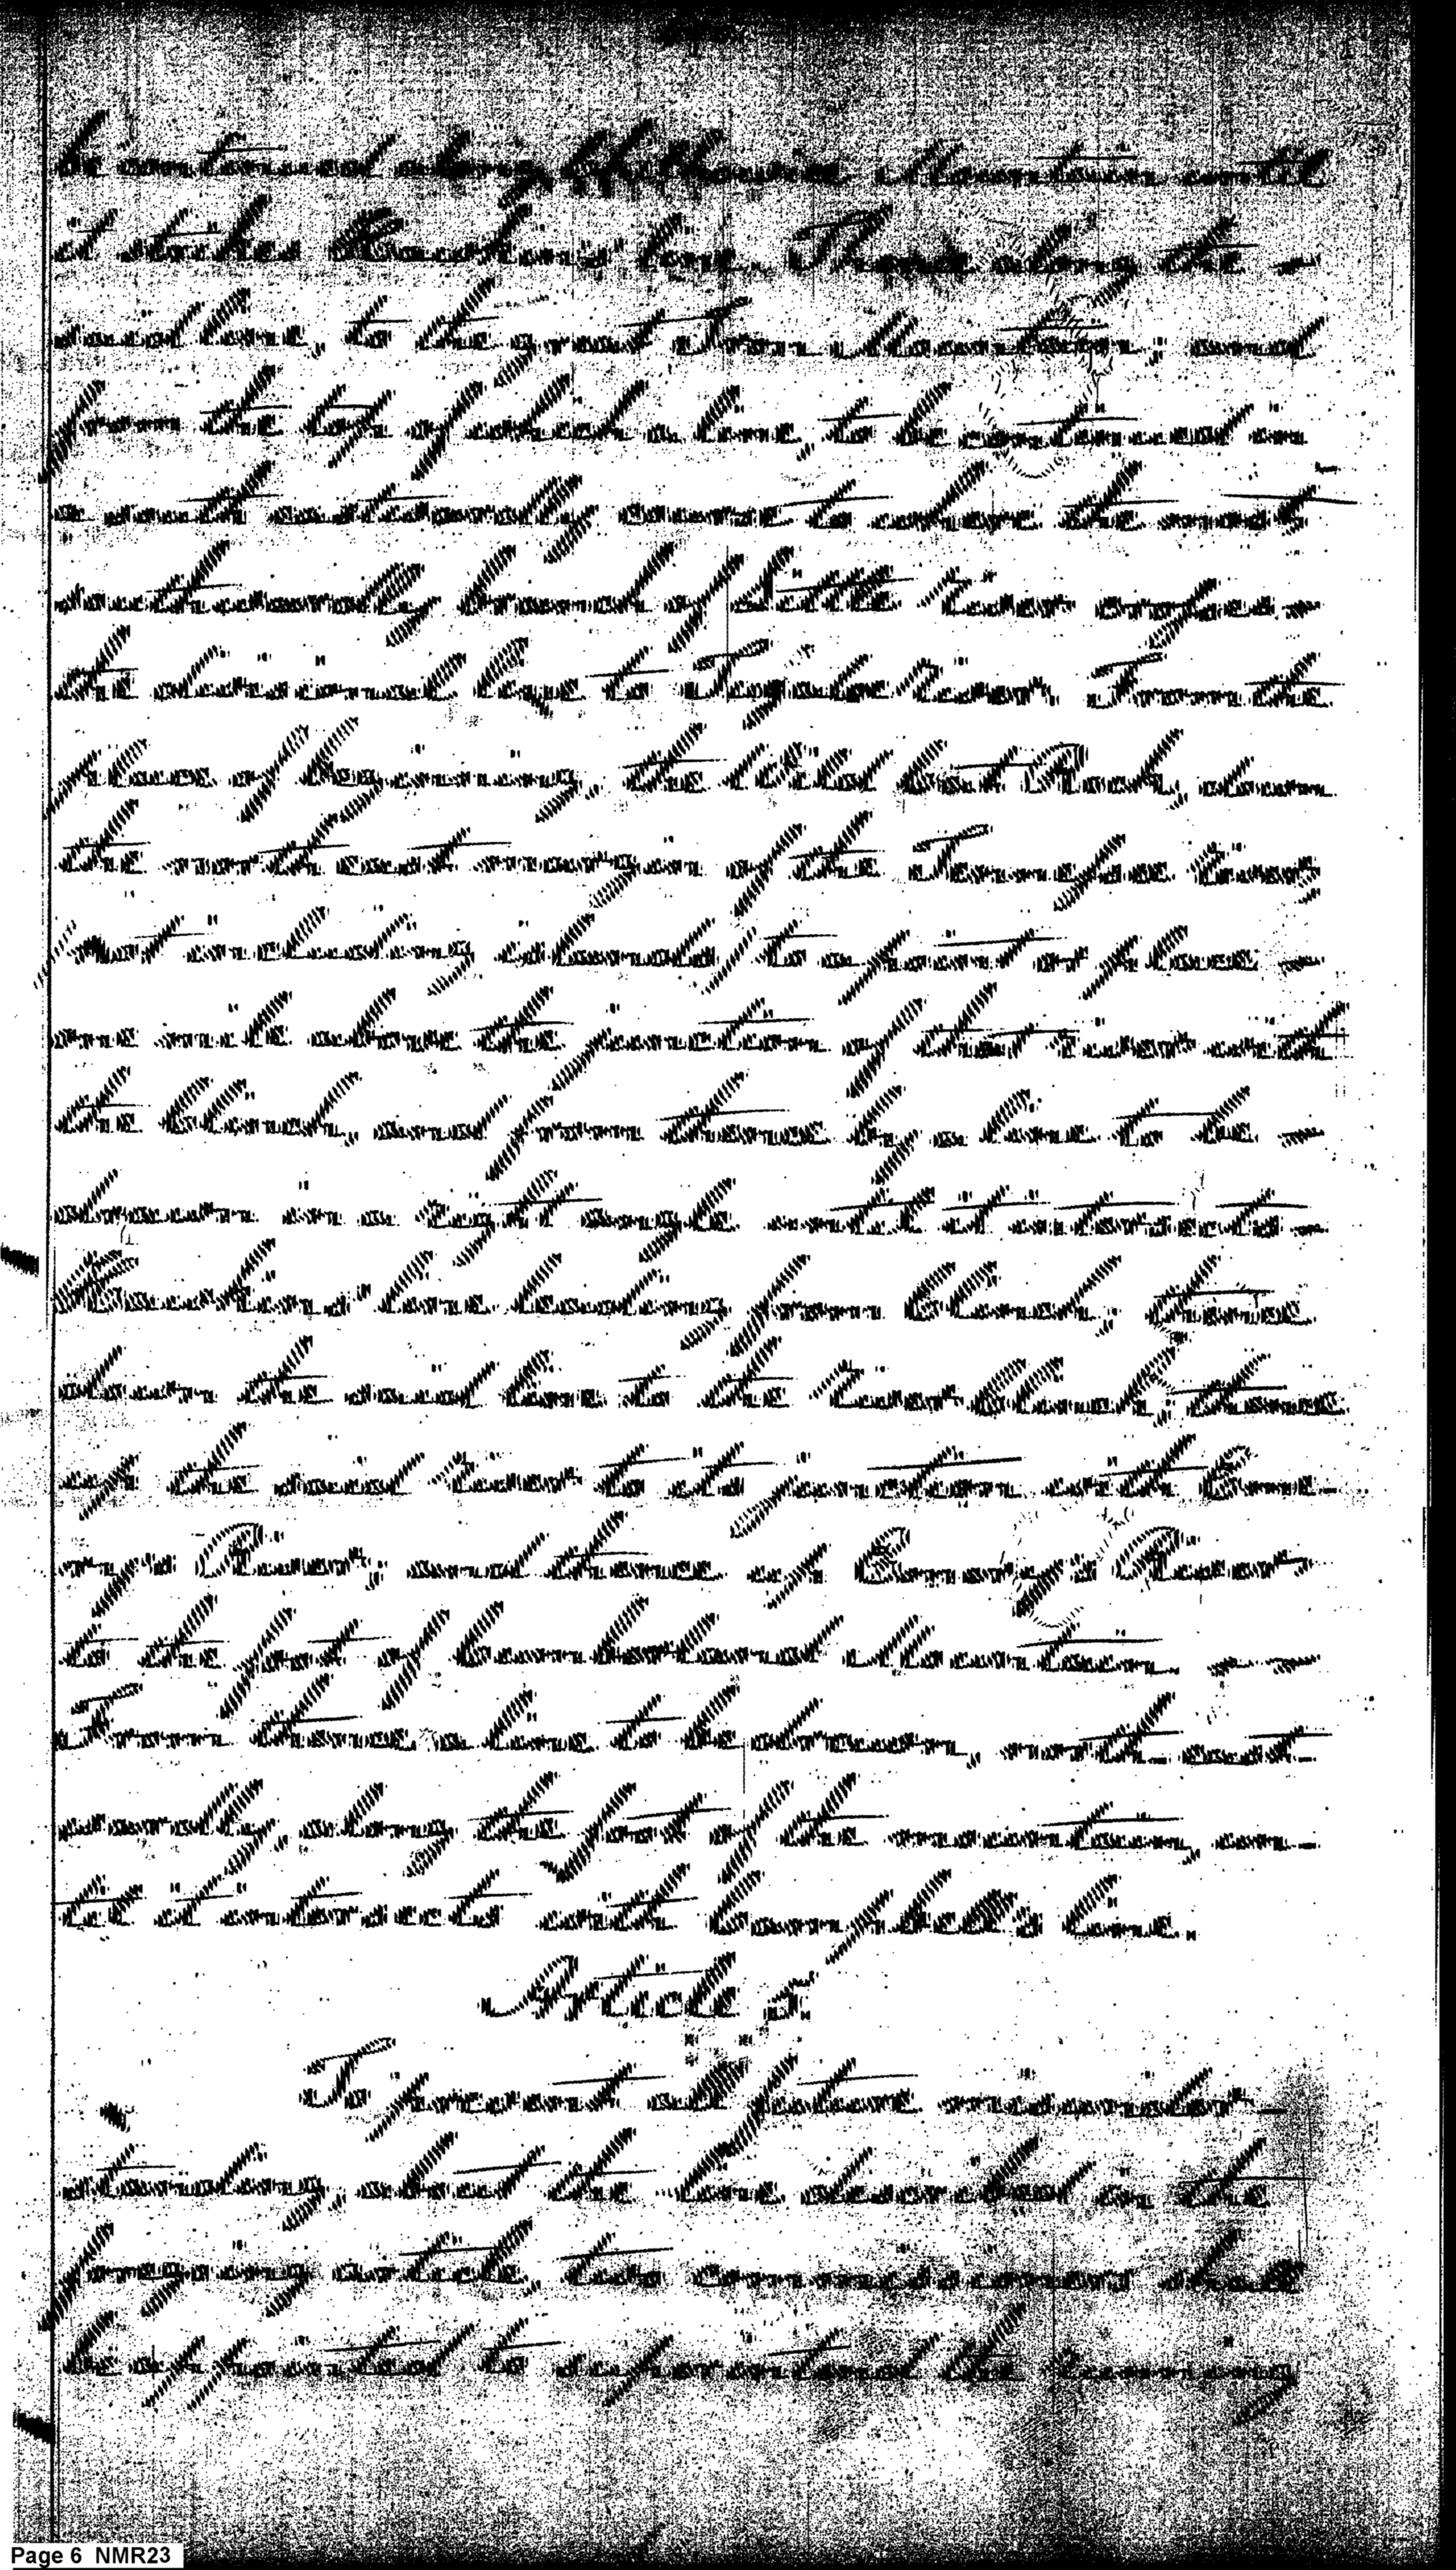 be continued along Chilhowie Mountain until
it strikes Hawkins's line. Thence along the —
said line, to the great Iron Mountain; and
from the top of which a line, to be continued in
a south eastwardly course to where the most
southwardly branch of Little River crosses —
the divisional line to Tugaloe River. From the
place of begining, the Wild Cat Rock, down
the north east margin of the Tennessee River
(not including islands) to a point or place —
one mile above the junction of that river with
the Clinch, and from thence by a line to be —
drawn in a right angle until it intersects —
Hawkins's line leading from Clinch; thence
down the said line to the river Clinch; thence
up the said River to its junction with Eme-
ry's River; and thence up Emery's River
to the foot of Cumberland Mountain. —
From thence a line to be drawn, north-east-
wardly, along the foot of the mountain, un-
til it intersects with Campbell's line.
Article 5
To prevent all future misunder-
standing about the line described in the
foregoing article, two commissioners shall
be appointed to superintend the Running
Page 6 NMR23